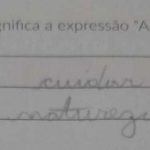 gnifica a expressão "A
cuidar
natureza